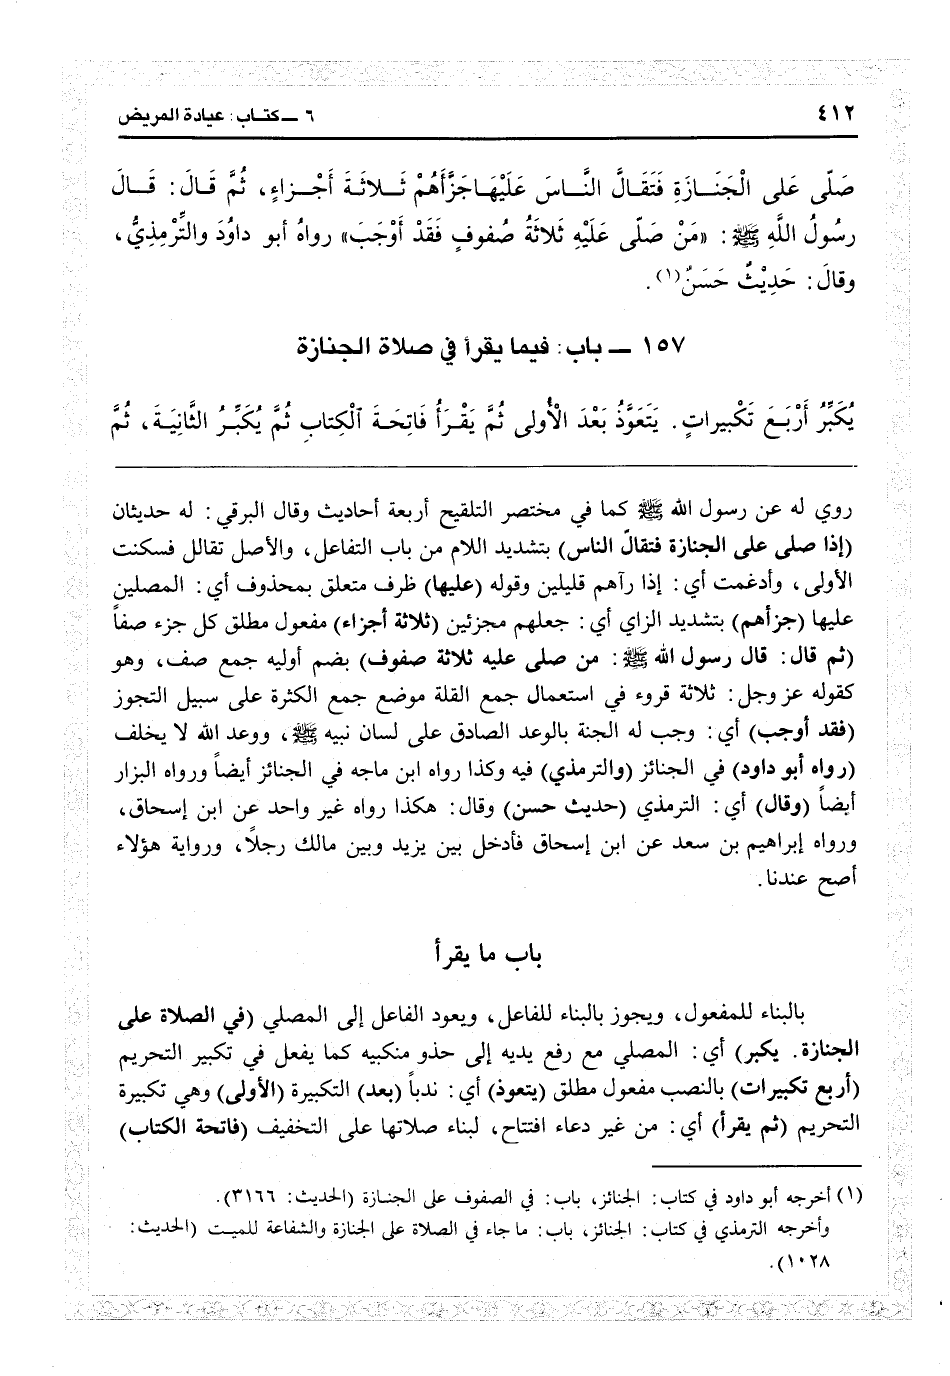 ٤١٢
٦ ــ كتاب: عيادة المريض
صَلَّى عَلى الْجَنَازَةِ فَتَقَالَّ النَّاسَ عَلَيْهَا جَزَّأَهُمْ ثَلاثَةَ أَجْزاءٍ، ثُمَّ قَالَ: قَالَ
رسُولُ اللَّهِ ﷺ: «مَنْ صَلَّى عَلَيْهِ ثَلاثَةُ صُفوفٍ فَقَدْ أَوْجَبَ» رواهُ أبو داوُدَ والتِّرْمِذِيُّ،
وقالَ: حَدِيْثٌ حَسَنٌ(١).
١٥٧ ــ باب: فيما يقرأ في صلاة الجنازة
يُكَبِّرُ أَرْبَعَ تَكْبيراتٍ. يَتَعَوَّذُ بَعْدَ الْأُولى ثُمَّ يَقْرَأُ فَاتِحَةَ ٱلْكِتابِ ثُمَّ يُكَبِّرُ الثَّانِيَةَ، ثُمَّ
روي له عن رسول الله ﷺ كما في مختصر التلقيح أربعة أحاديث وقال البرقي: له حديثان
(إذا صلى على الجنازة فتقالّ الناس) بتشديد اللام من باب التفاعل، والأصل تقالل فسكنت
الأولى، وأدغمت أي: إذا رآهم قليلين وقوله (عليها) ظرف متعلق بمحذوف أي: المصلين
عليها (جزأهم) بتشديد الزاي أي: جعلهم مجزئين (ثلاثة أجزاء) مفعول مطلق كل جزء صفاً
(ثم قال: قال رسول الله ﷺ: من صلى عليه ثلاثة صفوف) بضم أوليه جمع صف، وهو
كقوله عز وجل: ثلاثة قروء في استعمال جمع القلة موضع جمع الكثرة على سبيل التجوز
(فقد أوجب) أي: وجب له الجنة بالوعد الصادق على لسان نبيه ﷺ، ووعد الله لا يخلف
(رواه أبو داود) في الجنائز (والترمذي) فيه وكذا رواه ابن ماجه في الجنائز أيضاً ورواه البزار
أيضاً (وقال) أي: الترمذي (حديث حسن) وقال: هكذا رواه غير واحد عن ابن إسحاق،
ورواه إبراهيم بن سعد عن ابن إسحاق فأدخل بين يزيد وبين مالك رجلاً، ورواية هؤلاء
أصح عندنا.
باب ما يقرأ
بالبناء للمفعول، ويجوز بالبناء للفاعل، ويعود الفاعل إلى المصلي (في الصلاة على
الجنازة. يكبر) أي: المصلي مع رفع يديه إلى حذو منكبيه كما يفعل في تكبير التحريم
(أربع تكبيرات) بالنصب مفعول مطلق (يتعوذ) أي: ندباً (بعد) التكبيرة (الأولى) وهي تكبيرة
التحريم (ثم يقرأ) أي: من غير دعاء افتتاح، لبناء صلاتها على التخفيف (فاتحة الكتاب)
(١) أخرجه أبو داود في كتاب: الجنائز، باب: في الصفوف على الجنازة (الحديث: ٣١٦٦).
وأخرجه الترمذي في كتاب: الجنائز، باب: ما جاء في الصلاة على الجنازة والشفاعة للميت (الحديث:
١٠٢٨).